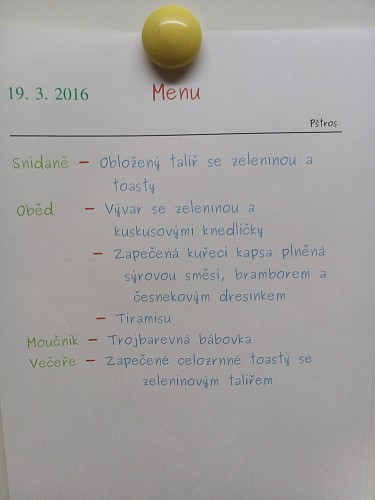 19. 3. 2016 Menu
Pštros
Snídaně – Obložený talíř se zeleninou a
toasty
Oběd – Vývar se zeleninou a
kuskusovými knedlíčky
– Zapečená kuřecí kapsa plněná
sýrovou směsí, bramborem a
česnekovým dresinkem
– Tiramisu
Moučník – Trojbarevná bábovka
Večeře – Zapečené celozrnné toasty se
zeleninovým talířem